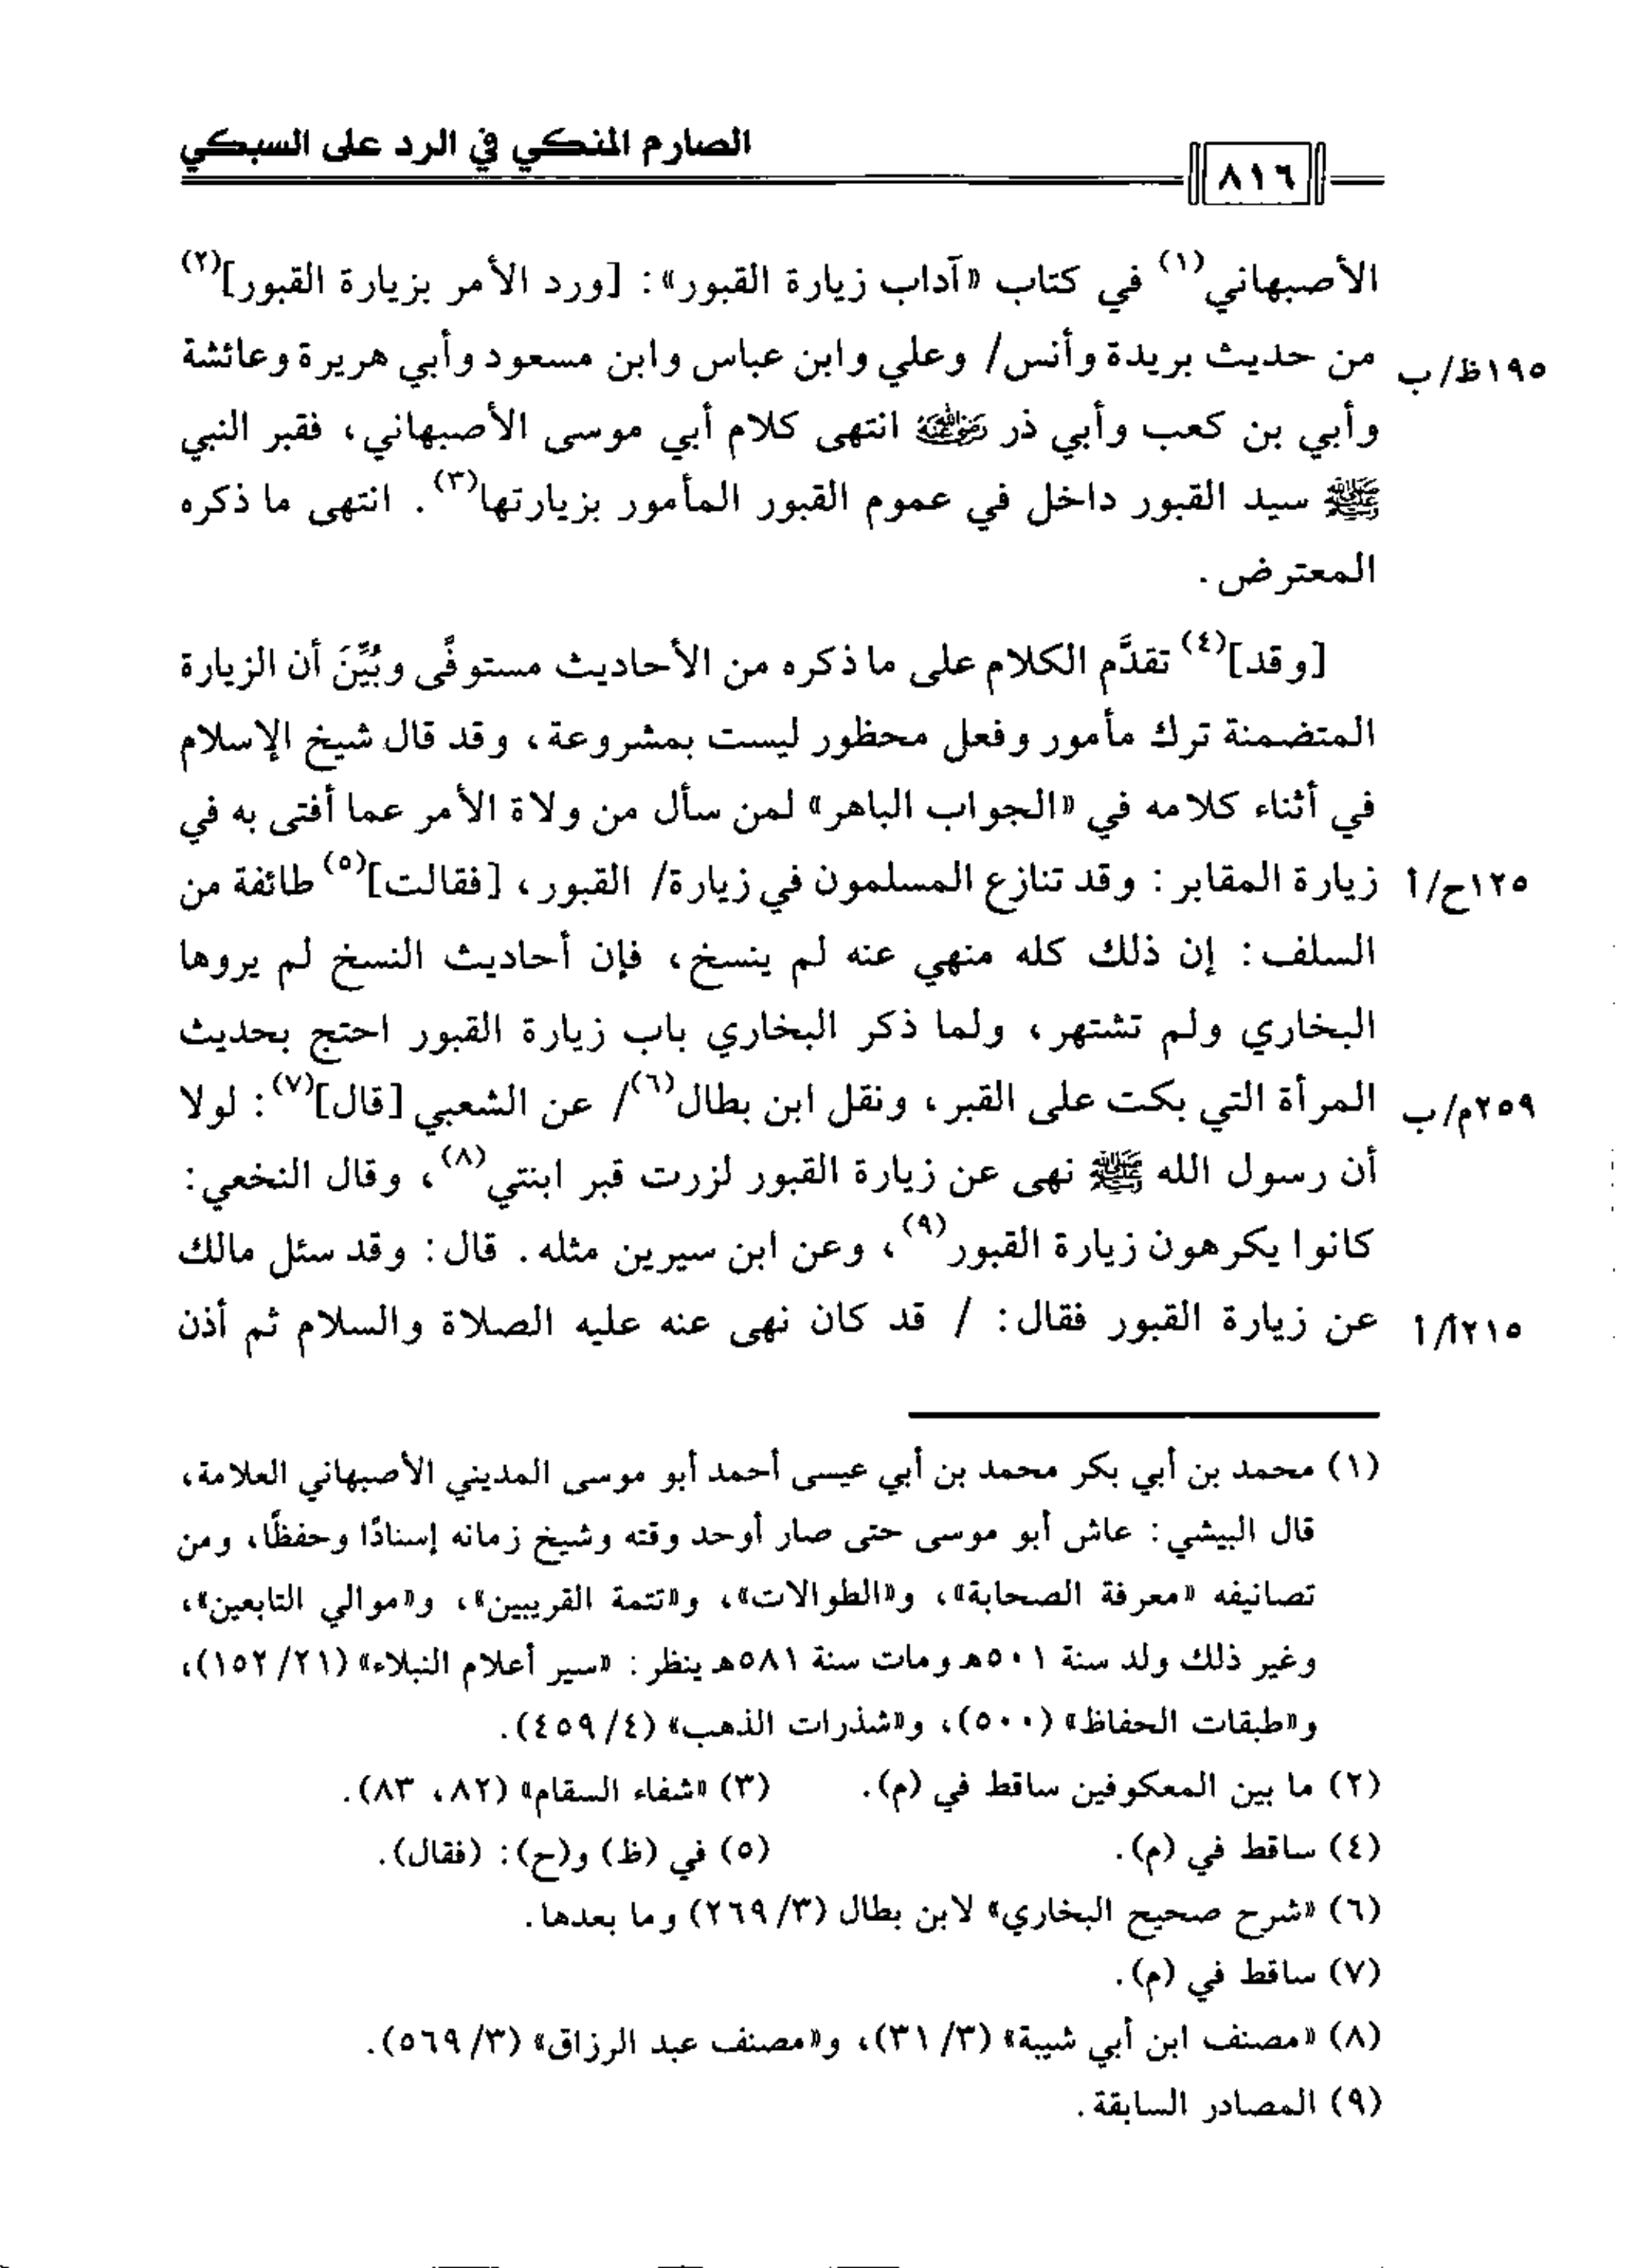 الصارم المنكي في الرد على السبكي
٨١٦
الأصبهاني(١) في كتاب «آداب زيارة القبور»: [ورد الأمر بزيارة القبور](٢)
من حديث بريدة وأنس/ وعلي وابن عباس وابن مسعود وأبي هريرة وعائشة
١٩٥ظ/ب
وأبي بن كعب وأبي ذر رضي الله عنهم انتهى كلام أبي موسى الأصبهاني، فقبر النبي
ﷺ سيد القبور داخل في عموم القبور المأمور بزيارتها(٣). انتهى ما ذكره
المعترض.
[وقد](٤) تقدَّم الكلام على ما ذكره من الأحاديث مستوفًى وبُيِّنَ أن الزيارة
المتضمنة ترك مأمور وفعل محظور ليست بمشروعة، وقد قال شيخ الإسلام
في أثناء كلامه في «الجواب الباهر» لمن سأل من ولاة الأمر عما أفتى به في
زيارة المقابر: وقد تنازع المسلمون في زيارة/ القبور، [فقالت](٥) طائفة من
١٢٥ح/أ
السلف: إن ذلك كله منهي عنه لم ينسخ، فإن أحاديث النسخ لم يروها
البخاري ولم تشتهر، ولما ذكر البخاري باب زيارة القبور احتج بحديث
المرأة التي بكت على القبر، ونقل ابن بطال(٦)/ عن الشعبي [قال](٧): لولا
٢٥٩م/ب
أن رسول الله ﷺ نهى عن زيارة القبور لزرت قبر ابنتي(٨)، وقال النخعي:
كانوا يكرهون زيارة القبور(٩)، وعن ابن سيرين مثله. قال: وقد سئل مالك
عن زيارة القبور فقال: / قد كان نهى عنه عليه الصلاة والسلام ثم أذن
٢١٥أ/أ
(١) محمد بن أبي بكر محمد بن أبي عيسى أحمد أبو موسى المديني الأصبهاني العلامة،
قال البيشي: عاش أبو موسى حتى صار أوحد وقته وشيخ زمانه إسنادًا وحفظًا، ومن
تصانيفه «معرفة الصحابة»، و«الطوالات»، و«تتمة القريبين»، و«موالي التابعين»،
وغير ذلك ولد سنة ٥٠١هـ ومات سنة ٥٨١هـ ينظر: «سير أعلام النبلاء» (٢١/ ١٥٢)،
و«طبقات الحفاظ» (٥٠٠)، و«شذرات الذهب» (٤/ ٤٥٩).
(٢) ما بين المعكوفين ساقط في (م). (٣) «شفاء السقام» (٨٢، ٨٣).
(٤) ساقط في (م). (٥) في (ظ) و(ح): (فقال).
(٦) «شرح صحيح البخاري» لابن بطال (٣/ ٢٦٩) وما بعدها.
(٧) ساقط في (م).
(٨) «مصنف ابن أبي شيبة» (٣/ ٣١)، و«مصنف عبد الرزاق» (٣/ ٥٦٩).
(٩) المصادر السابقة.